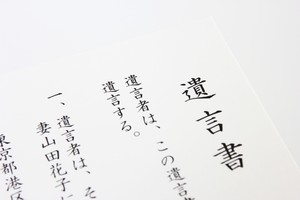 遺言書
遺言者は、この遺言
遺言する。
一、遺言者は、そ
妻山田花子に
東京都港区